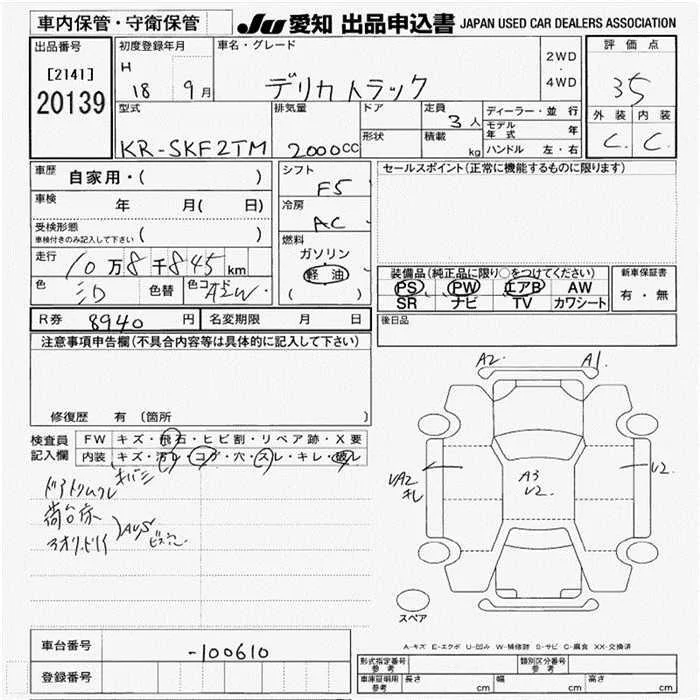 車内保管・守衛保管
JU 愛知 出品申込書 JAPAN USED CAR DEALERS ASSOCIATION
出品番号
[2141]
20139
初度登録年月
H 18 9月
車名・グレード
デリカトラック
2WD
・
4WD
評価点
35
外装 内装
C C
型式
KR-SKF2TM
排気量
2000cc
ドア
形状
定員 3人
積載 kg
ディーラー・並行
モデル年式 年
ハンドル 左・右
車歴 自家用・( )
車検 年 月( 日)
受検形態
車検付きのみ記入して下さい ( )
走行 10万8千845km
色 色替 色コード A2W
シフト
F5
冷房
AC
燃料
ガソリン
軽油
( )
セールスポイント(正常に機能するものに限ります)
装備品(純正品に限り○をつけてください)
PS PW エアB AW
SR ナビ TV カワシート
新車保証書
有・無
後日品
R券 8940円 名変期限 月 日
注意事項申告欄(不具合内容等は具体的に記入して下さい)
修復歴 有 (箇所 )
検査員記入欄
FW キズ・飛石・ヒビ割・リペア跡・X要
内装 キズ・汚レ・コゲ・穴・スレ・キレ・破レ
荷台床
A2 A1
UA2
キレ
A3
U2
U2
スペア
A-キズ E-エクボ U-凹み W-補修跡 S-サビ C-腐食 XX-交換済
車台番号 -100610
登録番号
形式指定番号 参考
類別区分番号 参考
車庫証明用 参考 長さ cm 幅 cm 高さ cm